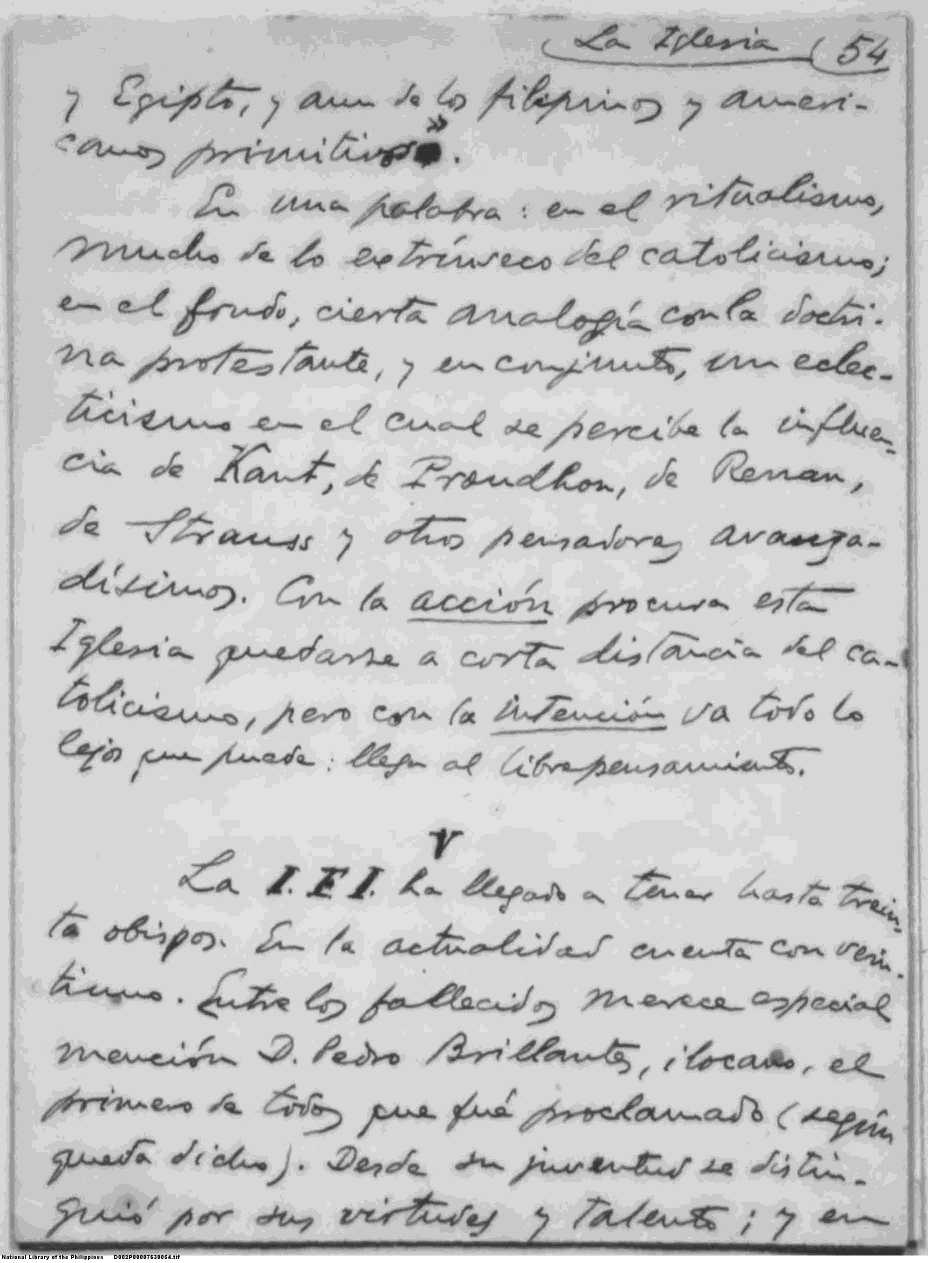 La Iglesia (54
y Egipto, y aun de los filipinos y ameri-
canos primitivos».
En una palabra: en el ritualismo,
mucho de lo extrínseco del catolicismo;
en el fondo, cierta analogía con la doctri-
na protestante, y en conjunto, un eclec-
ticismo en el cual se percibe la influen-
cia de Kant, de Proudhon, de Renan,
de Strauss y otros pensadores avanza-
dísimos. Con la acción procura esta
Iglesia quedarse a corta distancia del ca-
tolicismo, pero con la intención va todo lo
lejos que puede: llega al librepensamiento.
V
La I.F.I. ha llegado a tener hasta trein-
ta obispos. En la actualidad cuenta con vein-
tiuno. Entre los fallecidos merece especial
mención D. Pedro Brillantes, ilocano, el
primero de todos que fué proclamado (según
queda dicho). Desde su juventud se distin-
guió por sus virtudes y talento; y en
National Library of the Philippines D002P00007630054.tif